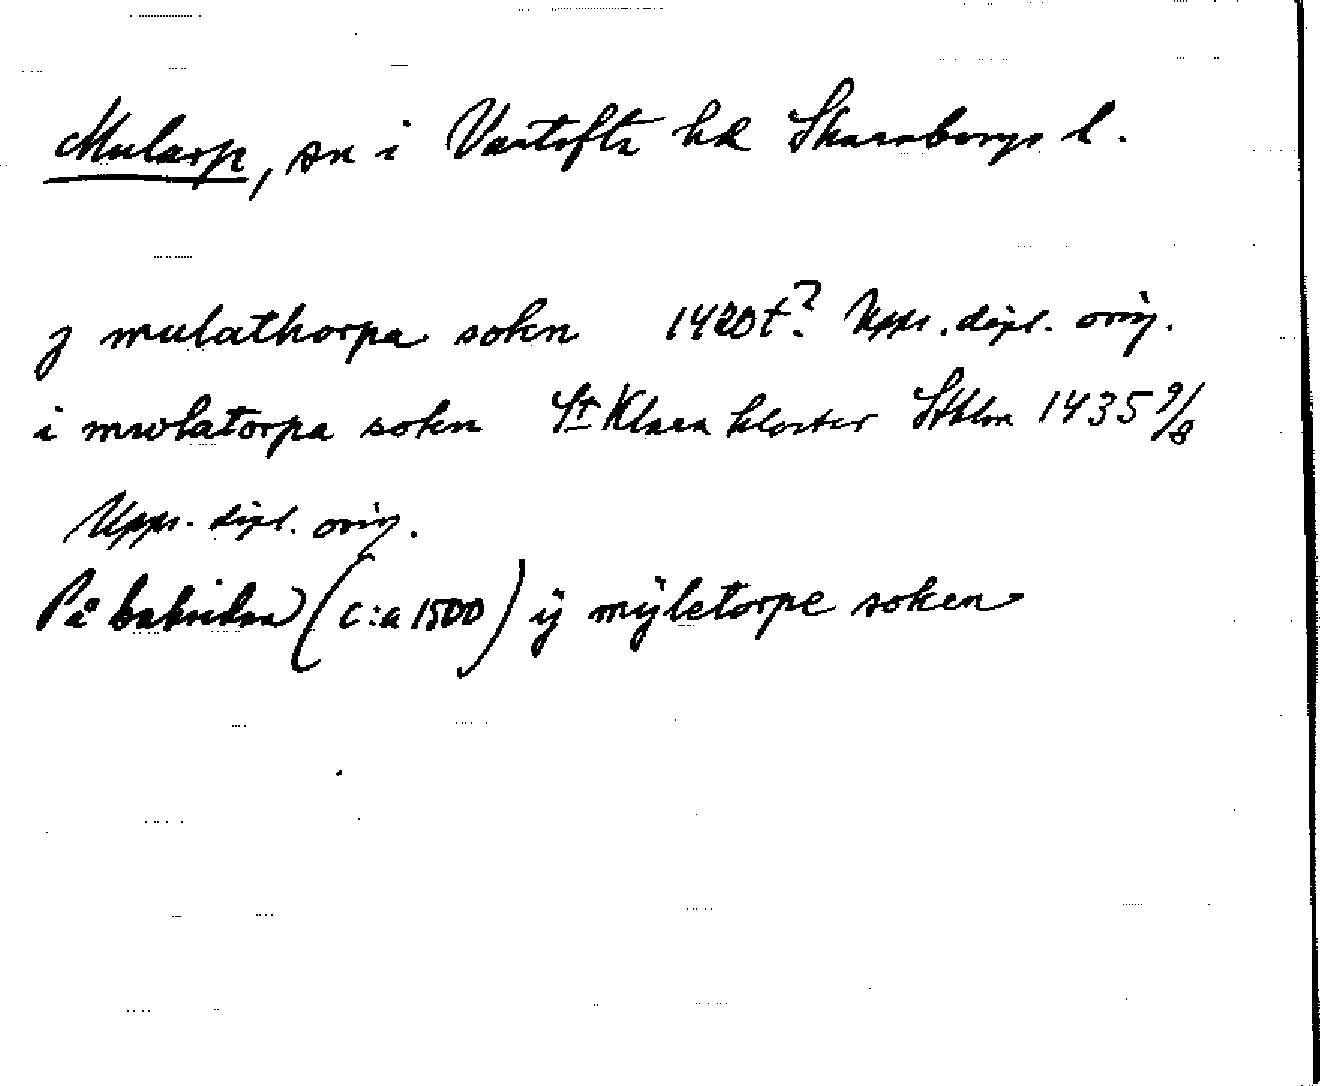 Mularp, sn i Vartofta hd Skaraborgs l.
j mulathorpa sokn 1420t? Upps. dipl. orig.
i mwlatorpa sokn St Klara kloster Sthlm 1435 9/8
Upps. dipl. orig.
På baksidan (c:a 1500) ij mÿletorpe soken